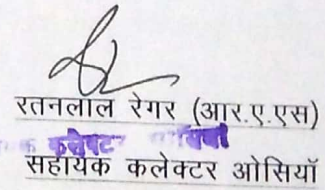 रतनलाल रेगर (आर.ए.एस)
सहायक कलेक्टर ओसियॉ